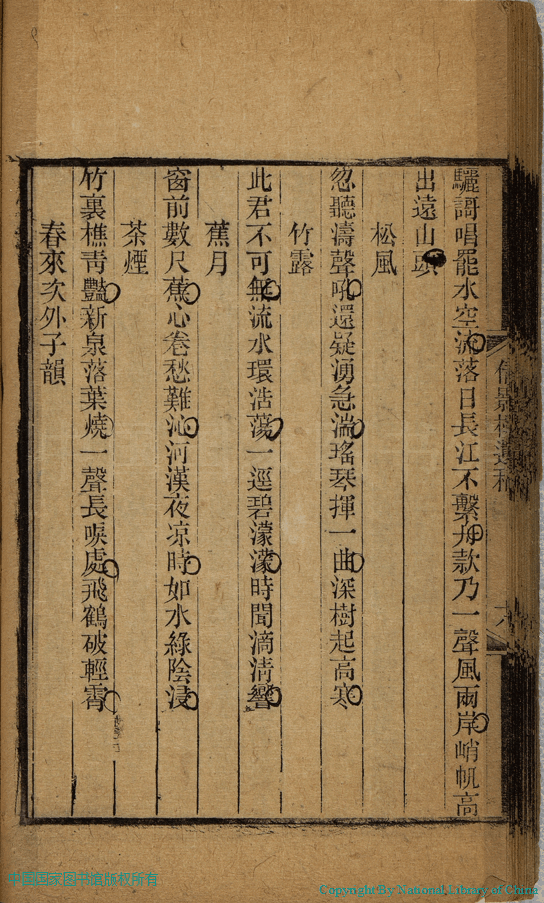 驪謌唱罷水空流落日長江不繫舟款乃一聲風雨岸峭帆高
出遠山頭
松風
忽聽濤聲吼還疑湧急湍瑤琴揮一曲深樹起高寒
竹露
此君不可無流水環浩蕩一逕碧濛濛時聞滴清響
蕉月
窗前數尺蕉心卷愁難沁河漢夜凉時如水綠陰浸
茶煙
竹裏樵靑豔新泉落葉燒一聲長唳處飛鶴破輕霄
春來次外子韻
中国国家图书馆版权所有
Copyright By National Library of China